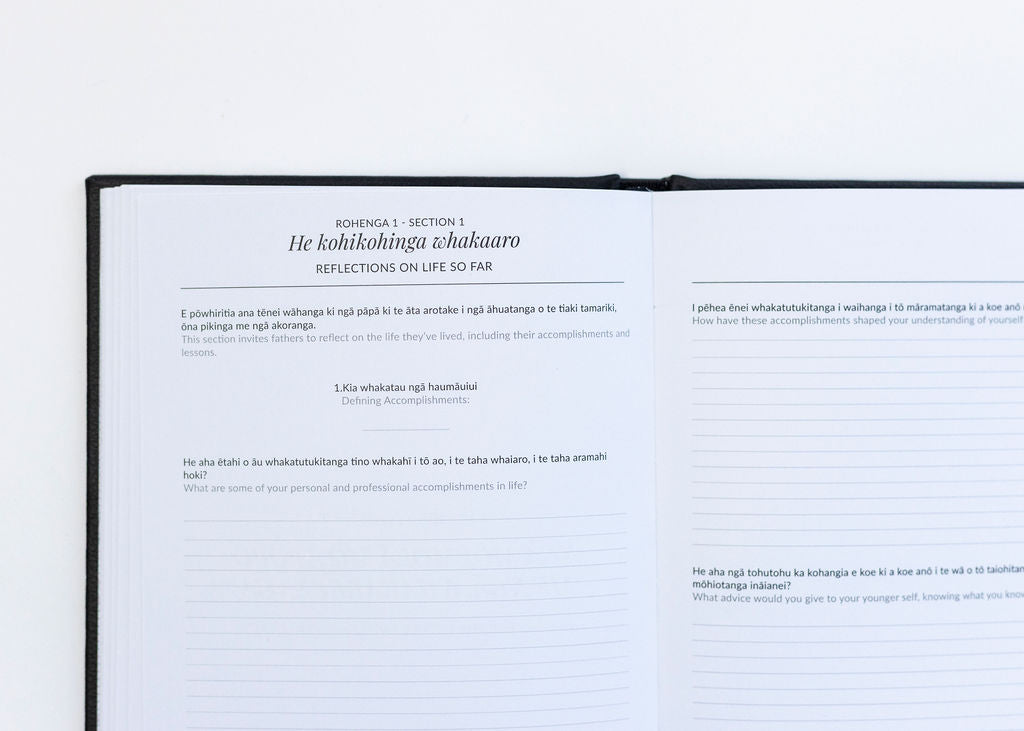 ROHENGA 1 - SECTION 1
He kohikohinga whakaaro
REFLECTIONS ON LIFE SO FAR
E pōwhiritia ana tēnei wāhanga ki ngā pāpā ki te āta arotake i ngā āhuatanga o te tiaki tamariki,
ōna pikinga me ngā akoranga.
This section invites fathers to reflect on the life they've lived, including their accomplishments and
lessons.
1.Kia whakatau ngā haumāuiui
Defining Accomplishments:
He aha ētahi o āu whakatutukitanga tino whakahī i tō ao, i te taha whaiaro, i te taha aramahi
hoki?
What are some of your personal and professional accomplishments in life?
I pēhea ēnei whakatutukitanga i waihanga i tō māramatanga ki a koe anō
How have these accomplishments shaped your understanding of yourself
He aha ngā tohutohu ka kohangia e koe ki a koe anō i te wā o tō
mōhiotanga ināianei?
What advice would you give to your younger self, knowing what you